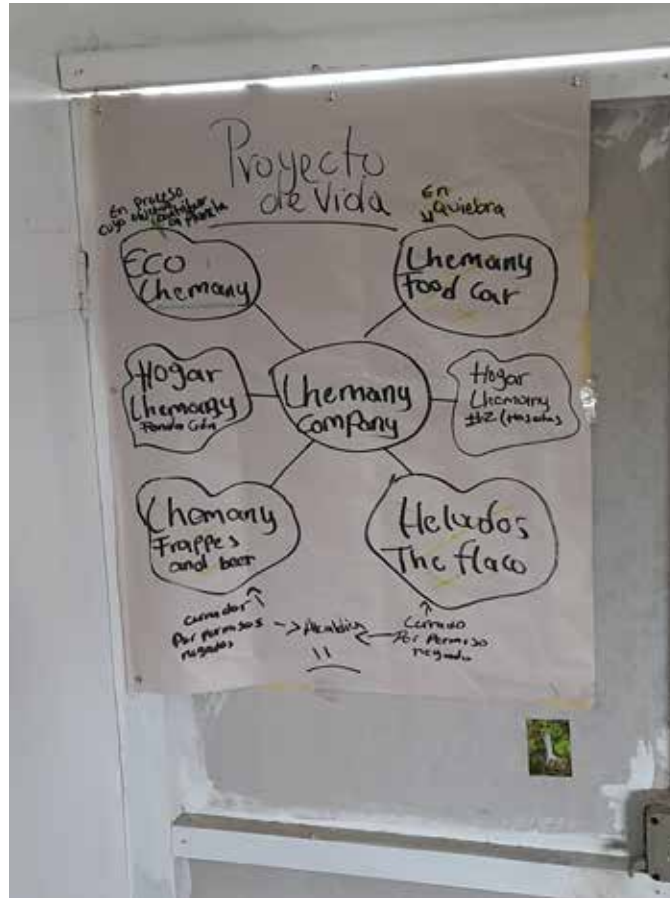 Proyecto
de Vida
En proceso
cuyo
contribuir
En
Quiebra
ECO
Chemany
Lhemany
Food Car
Hogar
Lhemany
Lhemany
Company
Hogar
Lhemany
#2 (Mascotas
Chemany
Frappes
and beer
Helados
The flaco
Por permisos
negados
Alcaldia
Cerrado
Por Permiso
negado